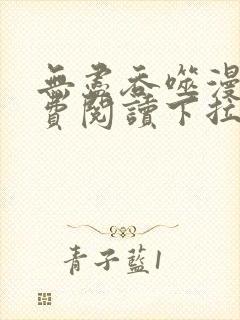 無盡吞噬漫
費閱讀下拉
青子藍1